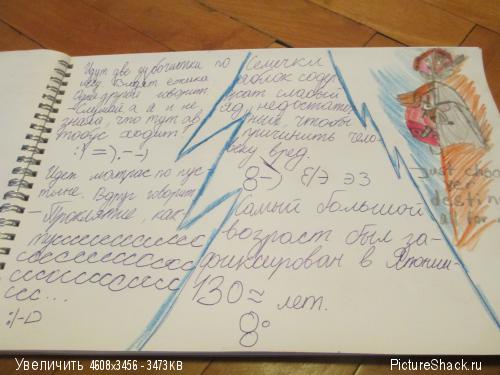 Идут две дубочиотки по
лесу. Видят ёжика.
Одна другой говорит:
- Слушай, а я и не
знала, что тут ав
тобус ходит!
:) =).-¬)
Идёт матрас по пус-
тыне. Вдруг говорит:
- Проклятие, как-
тусссссссссссс
ссссссссссссс
ссссссссссссс
ссс...
:/-D
Семечки
яблок содер
жат слабый
яд, недостаточ
ный, чтобы
причинить чело-
веку вред.
8-) Є/Э эз
Самый большой
возраст был за-
фиксирован в Японии-
130≈ лет.
8°
Just choo
yer
destin
at
Увеличить 4608x3456 - 3473KB
PictureShack.ru